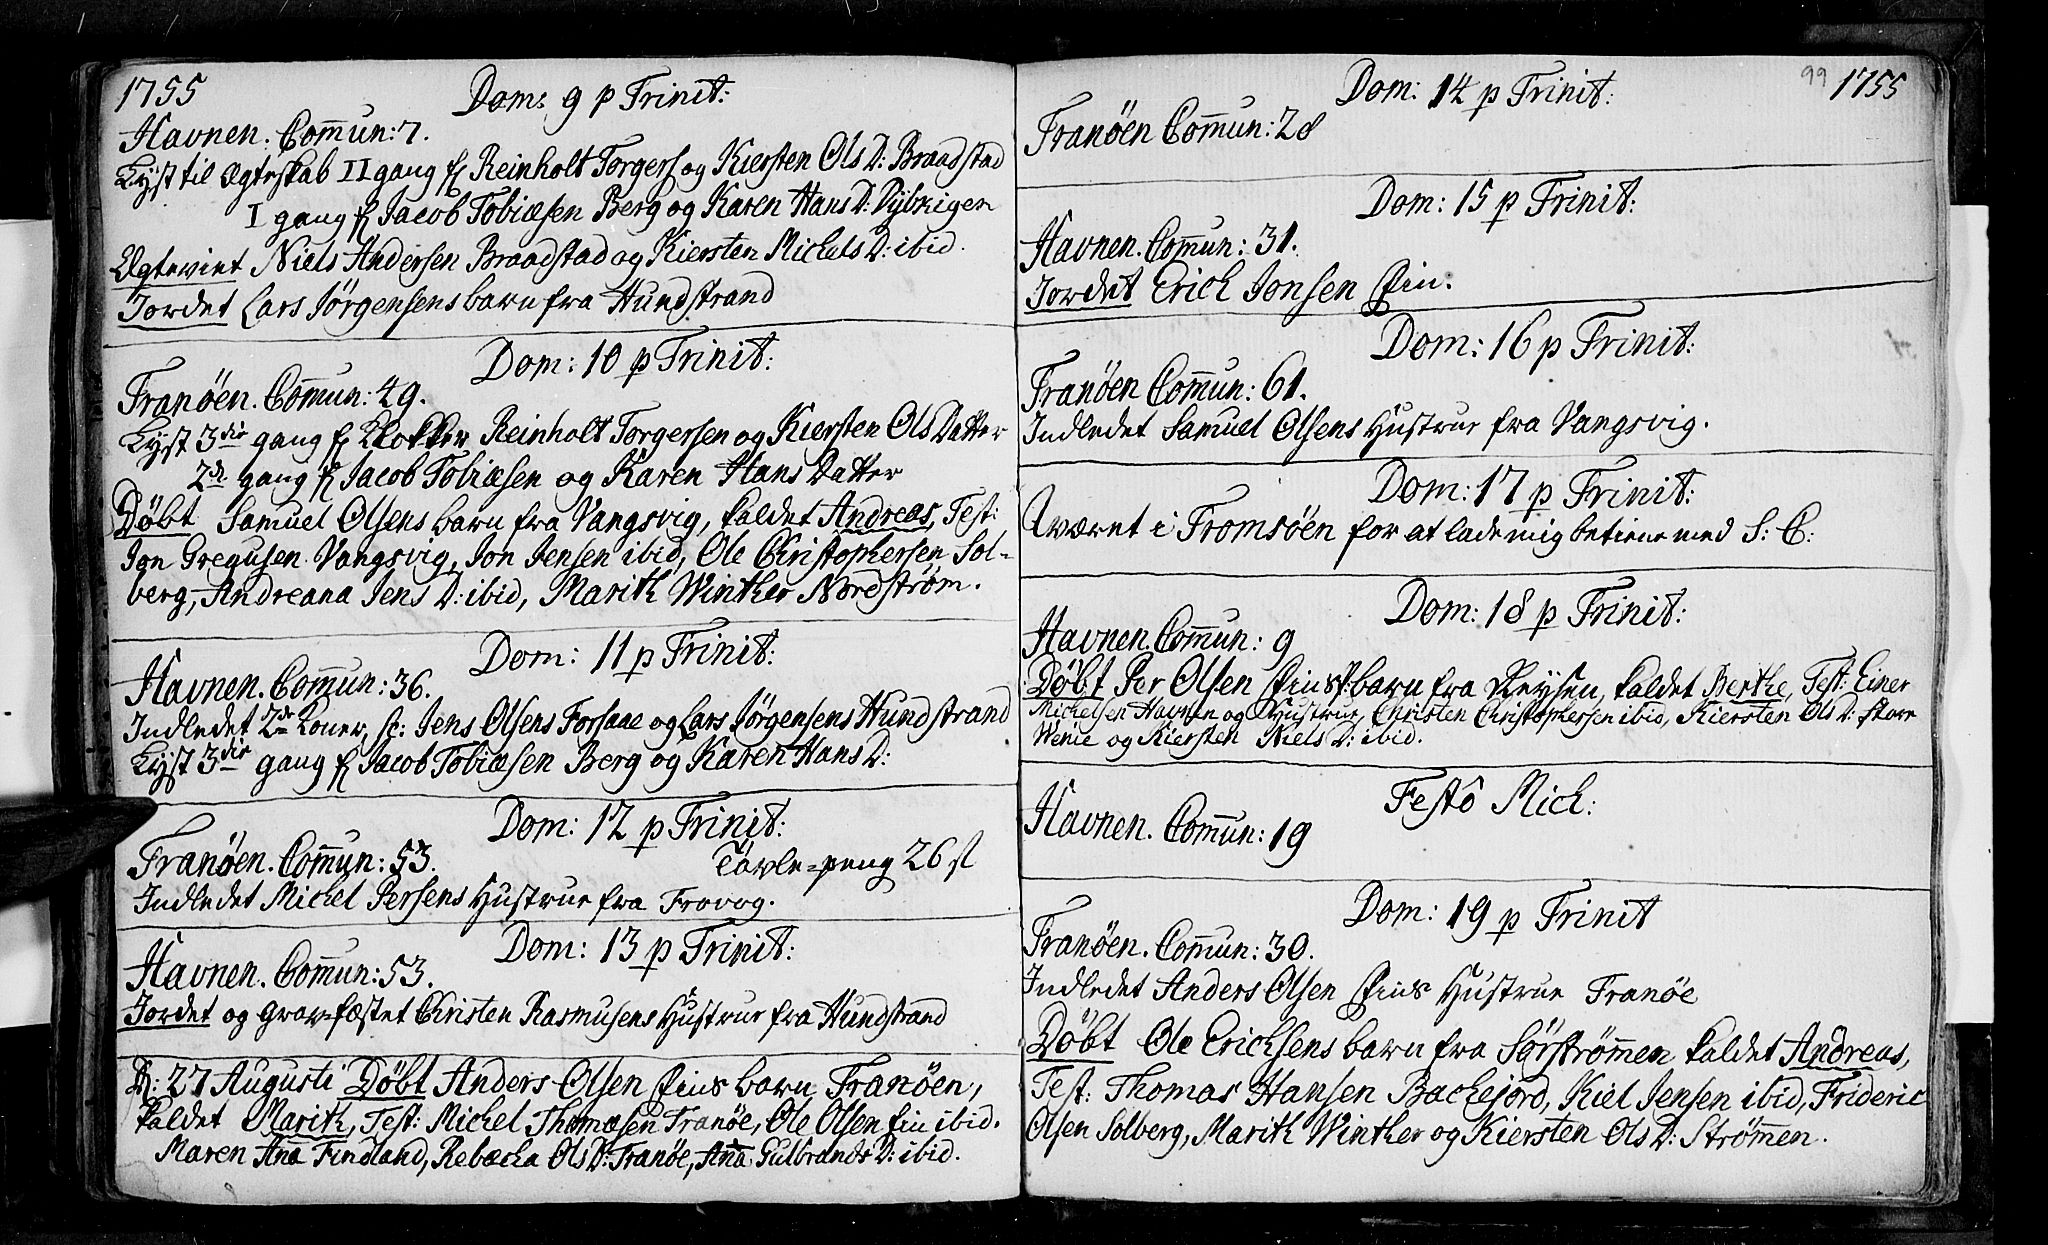 1755
Dom: 9 p Trinit:
Havnen. Com̄un: 7.
Lyst til Ægteskab II gang f Reinholt Torgers og Kiersten Ols D: Braadstad
I gang f Jacob Tobiæsen Berg og Karen Hans D: Dÿbvigen
Ægteviet Niels Andersen Braadstad og Kiersten Michels D: ibid.
Jordet Lars Jörgensens barn fra Hundstrand
Dom: 10 p Trinit:
Tranöen. Com̄un: 49.
Lyst 3die gang f Klokker Reinholt Torgersen og Kiersten Ols Datter
2de gang f Jacob Tobiæsen og Karen Hans Datter
Döbt Samuel Olsens barn fra Vangsvig, kaldet Andreas, Test:
Jon Gregusen Vangsvig, Jon Jensen ibid, Ole Christophersen Sol-
berg, Andreana Jens D: ibid, Marith Winther Nordström.
Dom: 11 p Trinit:
Havnen. Com̄un: 36.
Indledet 2de Koner, sc: Jens Olsens Forsaae og Lars Jörgensens Hundstrand
Lyst 3die gang f Jacob Tobiæsen Berg og Karen Hans D:
Dom: 12 p Trinit:
Tranöen. Com̄un: 53.
Tavle-peng 26 sl
Indledet Michel Persens Hustrue fra Frovog.
Dom: 13 p Trinit:
Havnen. Com̄un: 53.
Jordet og Gravfæstet Christen Rasmusens Hustrue fra Hundstrand
D: 27 Augusti Döbt Anders Olsen Fins barn Tranöen,
kaldet Marith, Test: Michel Thomæsen Tranöe, Ole Olsen Fin ibid.
Maren An̄a Findland, Rebæcha Ols D: Tranöe, An̄a Gulbrands D: ibid.
99 1755
Dom: 14 p Trinit:
Tranöen Com̄un: 28
Dom: 15 p Trinit:
Havnen. Com̄un: 31.
Jordet Erich Jonsen Fin.
Dom: 16 p Trinit:
Tranöen Com̄un: 61.
Indledet Samuel Olsens Hustrue fra Vangsvig.
Dom: 17 p Trinit:
været i Tromsöen for at lade mig betiene med S: C:
Dom: 18 p Trinit:
Havnen. Com̄un: 9
Döbt Per Olsen Fins barn fra Reysen, kaldet Berthe, Test: Einer
Michelsen Havnen og Hustrue, Christen Christophersen ibid, Kiersten Ols D: store
Wenie og Kiersten Niels D: ibid.
Festô Mich:
Havnen. Com̄un: 19
Dom: 19 p Trinit
Tranöen. Com̄un: 30.
Indledet Anders Olsen Fins Hustrue Tranöe
Döbt Ole Erichsens barn fra Sörströmmen kaldet Andreas,
Test: Thomas Hansen Bachejord, Kiel Jensen ibid, Frideric
Olsen Solberg, Marith Winther og Kiersten Ols D: Strömen.